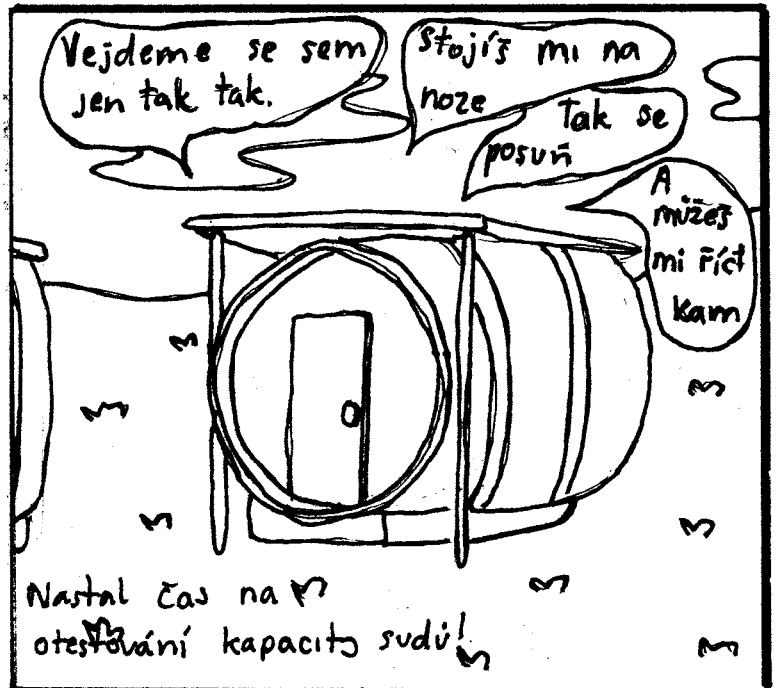 Vejdeme se sem
jen tak tak.
Stojíš mi na
noze
Tak se
posuň
A
můžeš
mi říct
kam
Nastal čas na
otestování kapacity sudů!